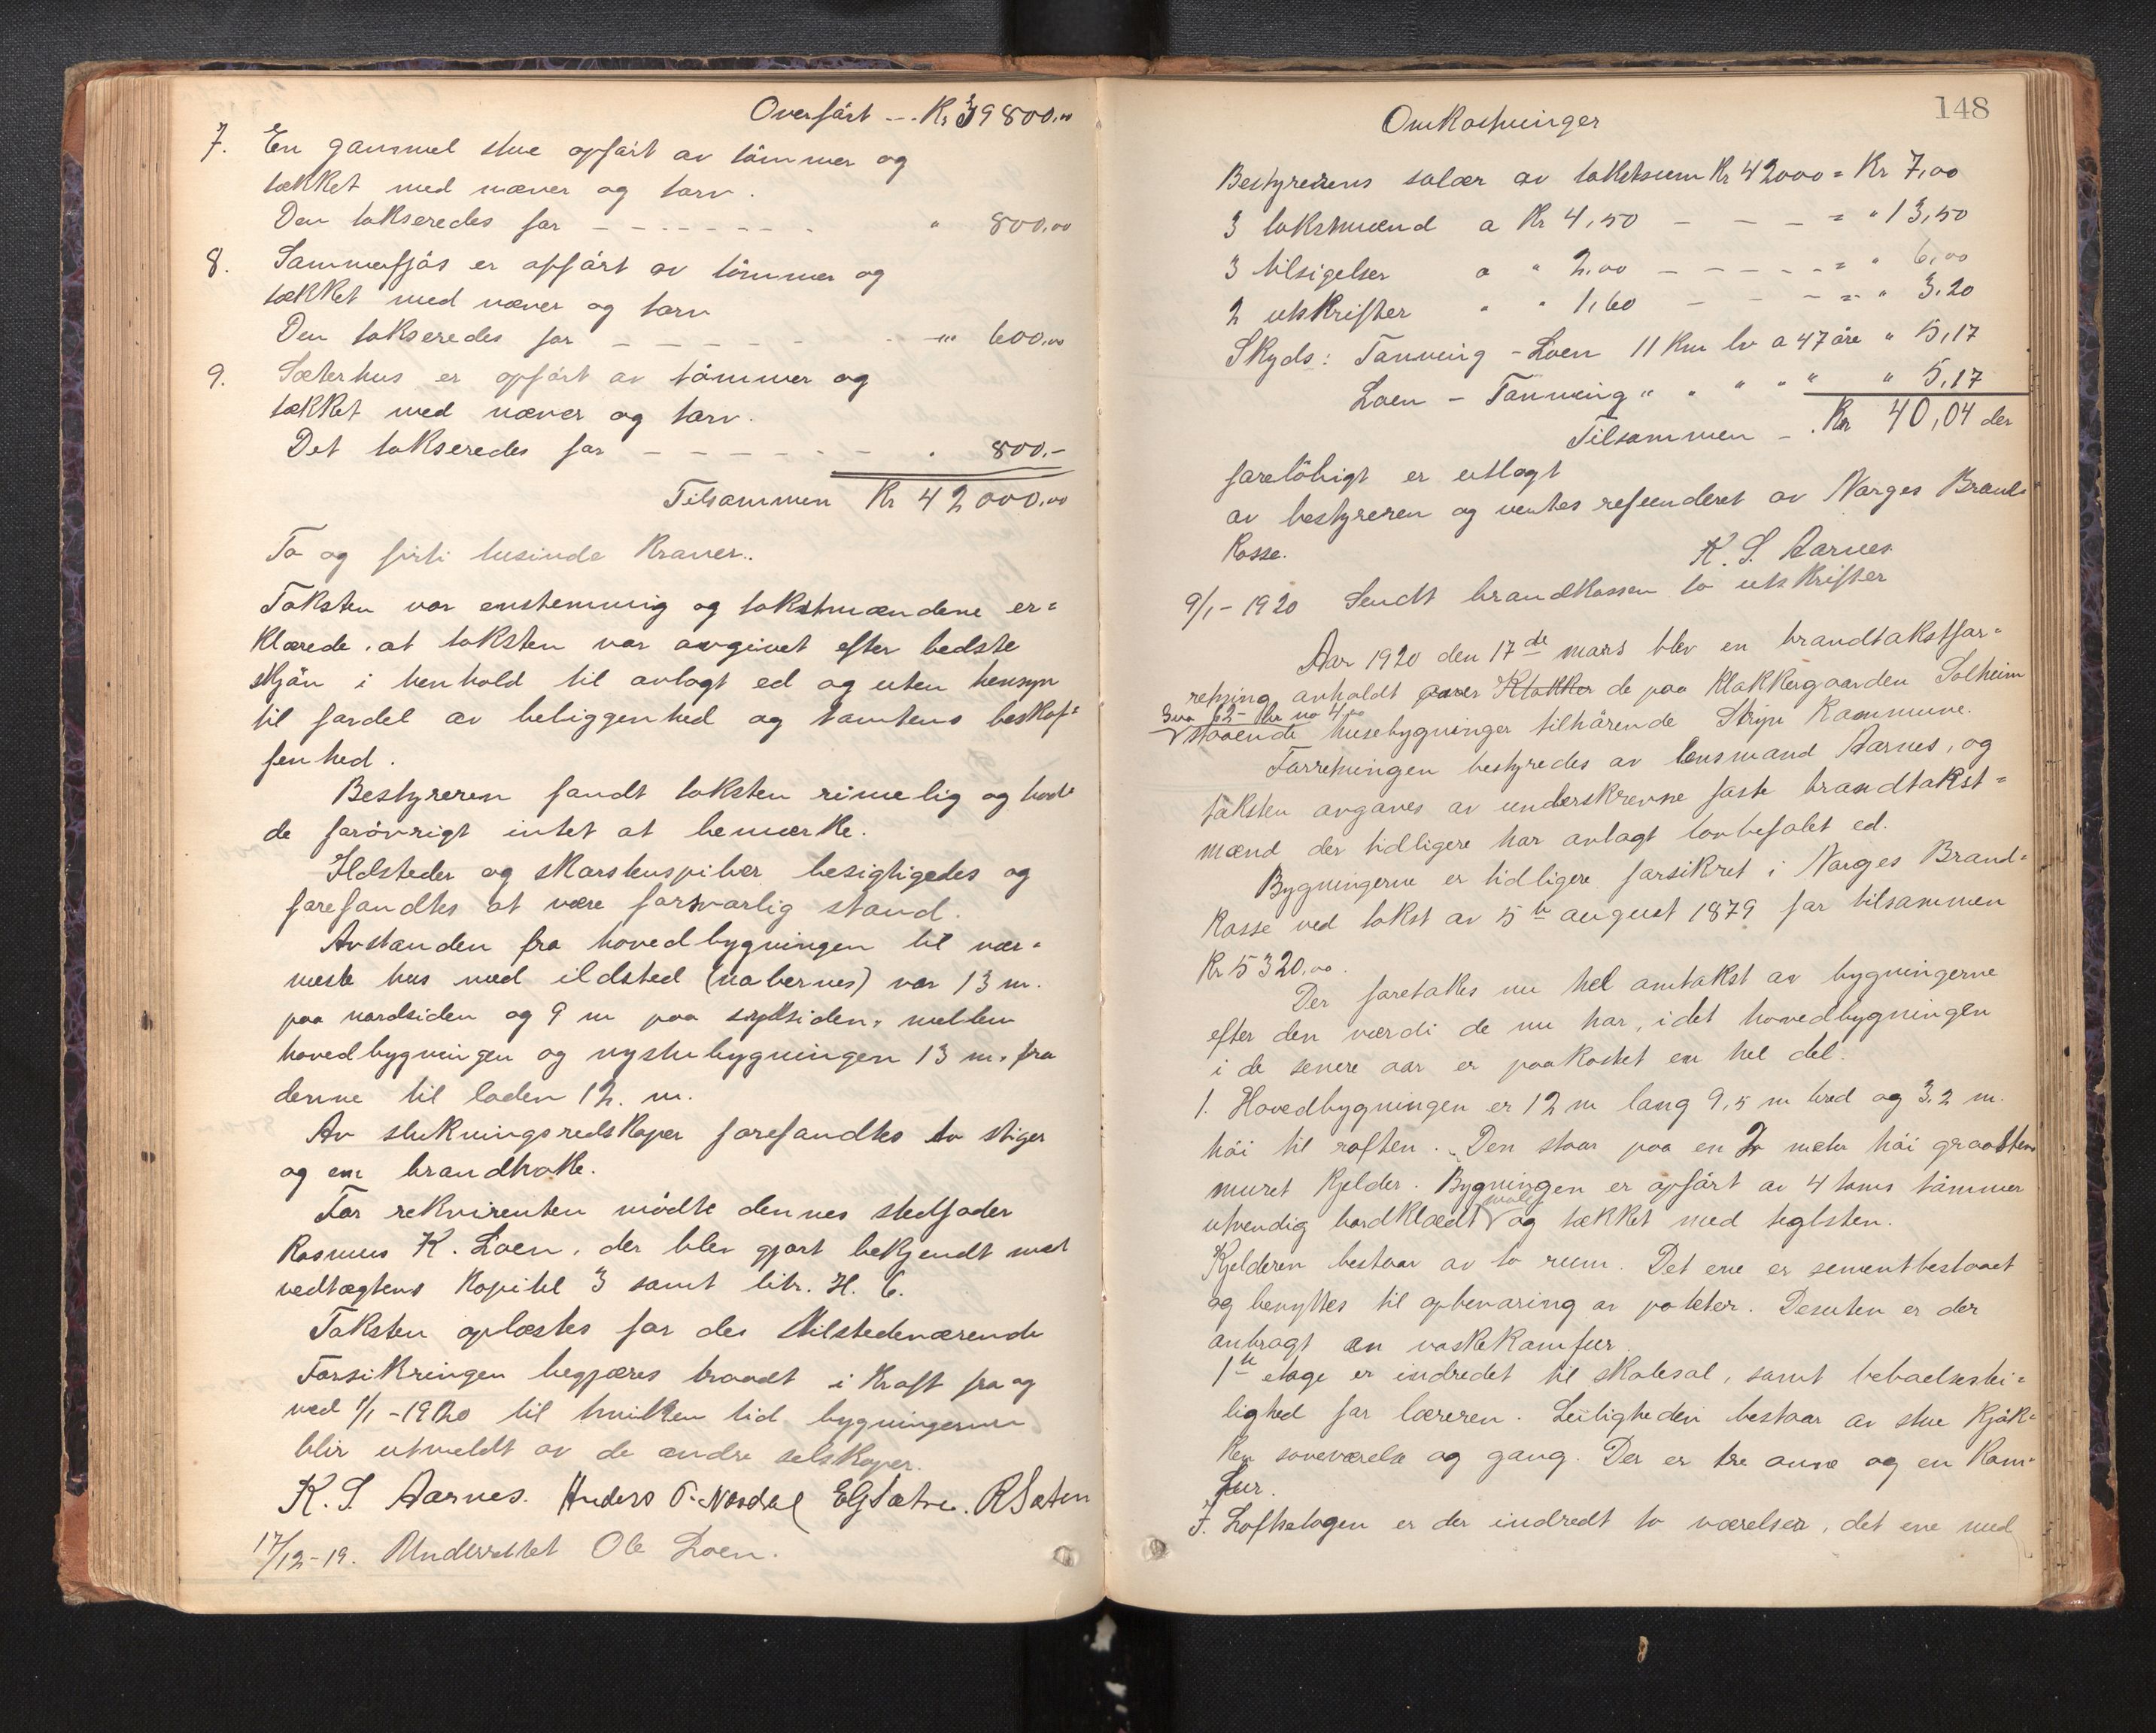 Overført --. Kr 39800.00
7. En gammel stue opført av tømmer og
tækket med næver og torv.
Den takseredes for - - - - - - - " 800,00
8. Sommerfjøs er opført av tømmer og
tækket med næver og torv
Den takseredes for - - - - - - " 600,00
9. Sæterhus er opført av tømmer og
tækket med næver og torv.
Det takseredes for - - - - - - " 800.-
Tilsammen Kr 42000,00
To og førti tusinde kroner..
Taksten var enstemmig og takstmændene er=
klærede at taksten var avgivet efter bedste
skjøn i henhold til avlagt ed og uten hensyn
til fordel av beliggenhed og tomtens beskaf=
fenhed.
Bestyreren fandt taksten rimelig og havde
de forøvrigt intet at bemærke.
Ildsteder og skorstenspiber besigtigedes og
forefandtes at være forsvarlig stand.
Avstanden fra hovedbygningen til nær=
meste hus med ildsted (naboernes) var 13 m.
paa nordsiden og 9 m paa sydsiden, mellem
hovedbygningen og nystubygningen 13 m. fra
denne til loden 12. m.
Av slukningsredskaper forefandtes to stiger
og en brandhake.
For rekvirenten mødte dennes stedfader
Rasmus K. Loen, der blev gjort bekjendt med
vedtægtens kapitel 3 samt litr. H. 6.
Taksten oplæstes for de tilstedeværende
Forsikringen begjæres traadt i kraft fra og
med 1/1-1920 til hvilken tid bygningerne
blir utmeldt av de andre selskaper.
K. S. Aarnes. Anders P. Nesdal EGSætre. RSæten
17/12-19. Underrettet Ole Loen.
148
Omkostninger
Bestyrerens salær av takstsum Kr 42000 = Kr 7,00
3 takstmænd a Kr 4,50 - - - = " 13,50
3 tilsigelser a " 2,00 - - - - - = " 6,00
2 utskrifter " " 1,60 - - - = " 3,20
Skyds: Tonning - Loen 11 km lv a 47 øre " 5,17
Loen - Tonning " " " " " " 5,17
Tilsammen - . Kr 40,04 der
foreløbigt er utlagt
av bestyreren og ventes refunderet av Norges Brand-
kasse.
K. S. Aarnes.
9/1-1920 Sendt brandkassen to utskrifter
Aar 1920 den 17de mars blev en brandtakstfor=
retning avholdt over Klokker de paa Klokkergaarden Solheim
62 br no 4
staaende husebygninger tilhørende Stryn kommune.
Forretningen bestyredes av lensmand Aarnes, og
taksten avgaves av underskrevne faste brandtakst=
mænd der tidligere har avlagt lovbefalet ed.
Bygningerne er tidligere forsikret i Norges Brand=
kasse ved takst av 5te august 1879 for tilsammen
Kr 5320,00.
Der foretakes nu hel omtakst av bygningerne
efter den værdi de nu har, idet hovedbygningen
i de senere aar er paakostet en hel del.
1. Hovedbygningen er 12 m lang 9,5 m bred og 3,2 m.
høi til raften. Den staar paa en 2 meter høi graastens
muret kjelder. Bygningen er opført av 4 toms tømmer
malet
utvendig bordklædt og tækket med teglsten.
Kjelderen bestaar av to rum. Det ene er sementbestaaet
og benyttes til opbevaring av poteter. Desuten er der
anbragt en vaskekomfur.
1te etage er indredet til skolesal, samt beboelseslei=
lighed for læreren. Leiligheden bestaar av stue kjøk=
ken soveværelse og gang. Der er tre ovne og en kom=
fur.
I. Loftsetagen er der indredt to værelser, det ene med